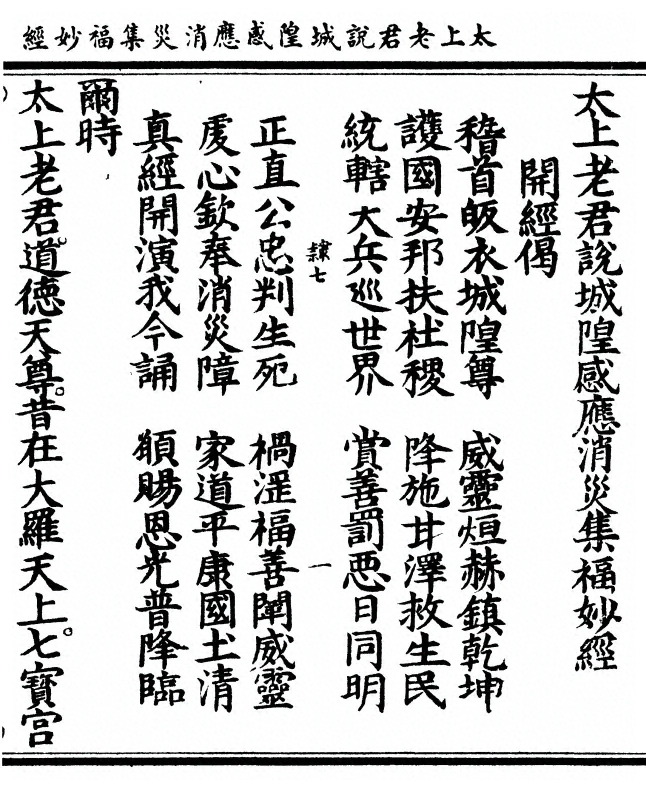 太上老君說城隍感應消災集福妙經
太上老君說城隍感應消災集福妙經
開經偈
稽首皈衣城隍尊　威靈烜赫鎮乾坤
護國安邦扶社稷　降施甘澤救生民
統轄大兵巡世界　賞善罰惡日同明
隸七　一
正直公忠判生死　禍淫福善闡威靈
虔心欽奉消災障　家道平康國土清
真經開演我今誦　願賜恩光普降臨
爾時
太上老君。道德天尊。昔在大羅天上。七寶宮